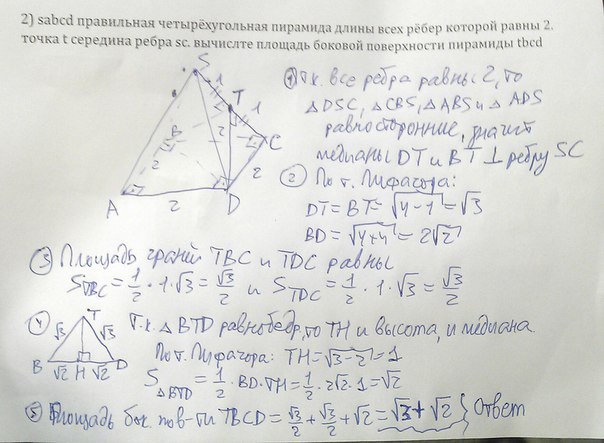 2) sabcd правильная четырёхугольная пирамида длины всех рёбер которой равны 2.
точка t середина ребра sc. вычислте площадь боковой поверхности пирамиды tbcd
S
1
T
1
B
2
C
2
2
2
A
2
D
① Т.к. все ребра равны 2, то
△DSC, △CBS, △ABS и △ADS
равносторонние, значит
медианы DT и BT ⊥ ребру SC
② По т. Пифагора:
DT = BT = √4-1 = √3
BD = √4+4 = 2√2
③ Площадь граней TBC и TDC равны
S TBC = 1/2 · 1 · √3 = √3/2 и S TDC = 1/2 · 1 · √3 = √3/2
④ T
√3 √3
B √2 H √2 D
Т.к. △BTD равнобедр, то TH и высота, и медиана.
По т. Пифагора: TH = √3-2 = 1
S △BTD = 1/2 · BD · TH = 1/2 · 2√2 · 1 = √2
⑤ Площадь бок. пов-ти TBCD = √3/2 + √3/2 + √2 = √3 + √2 } Ответ